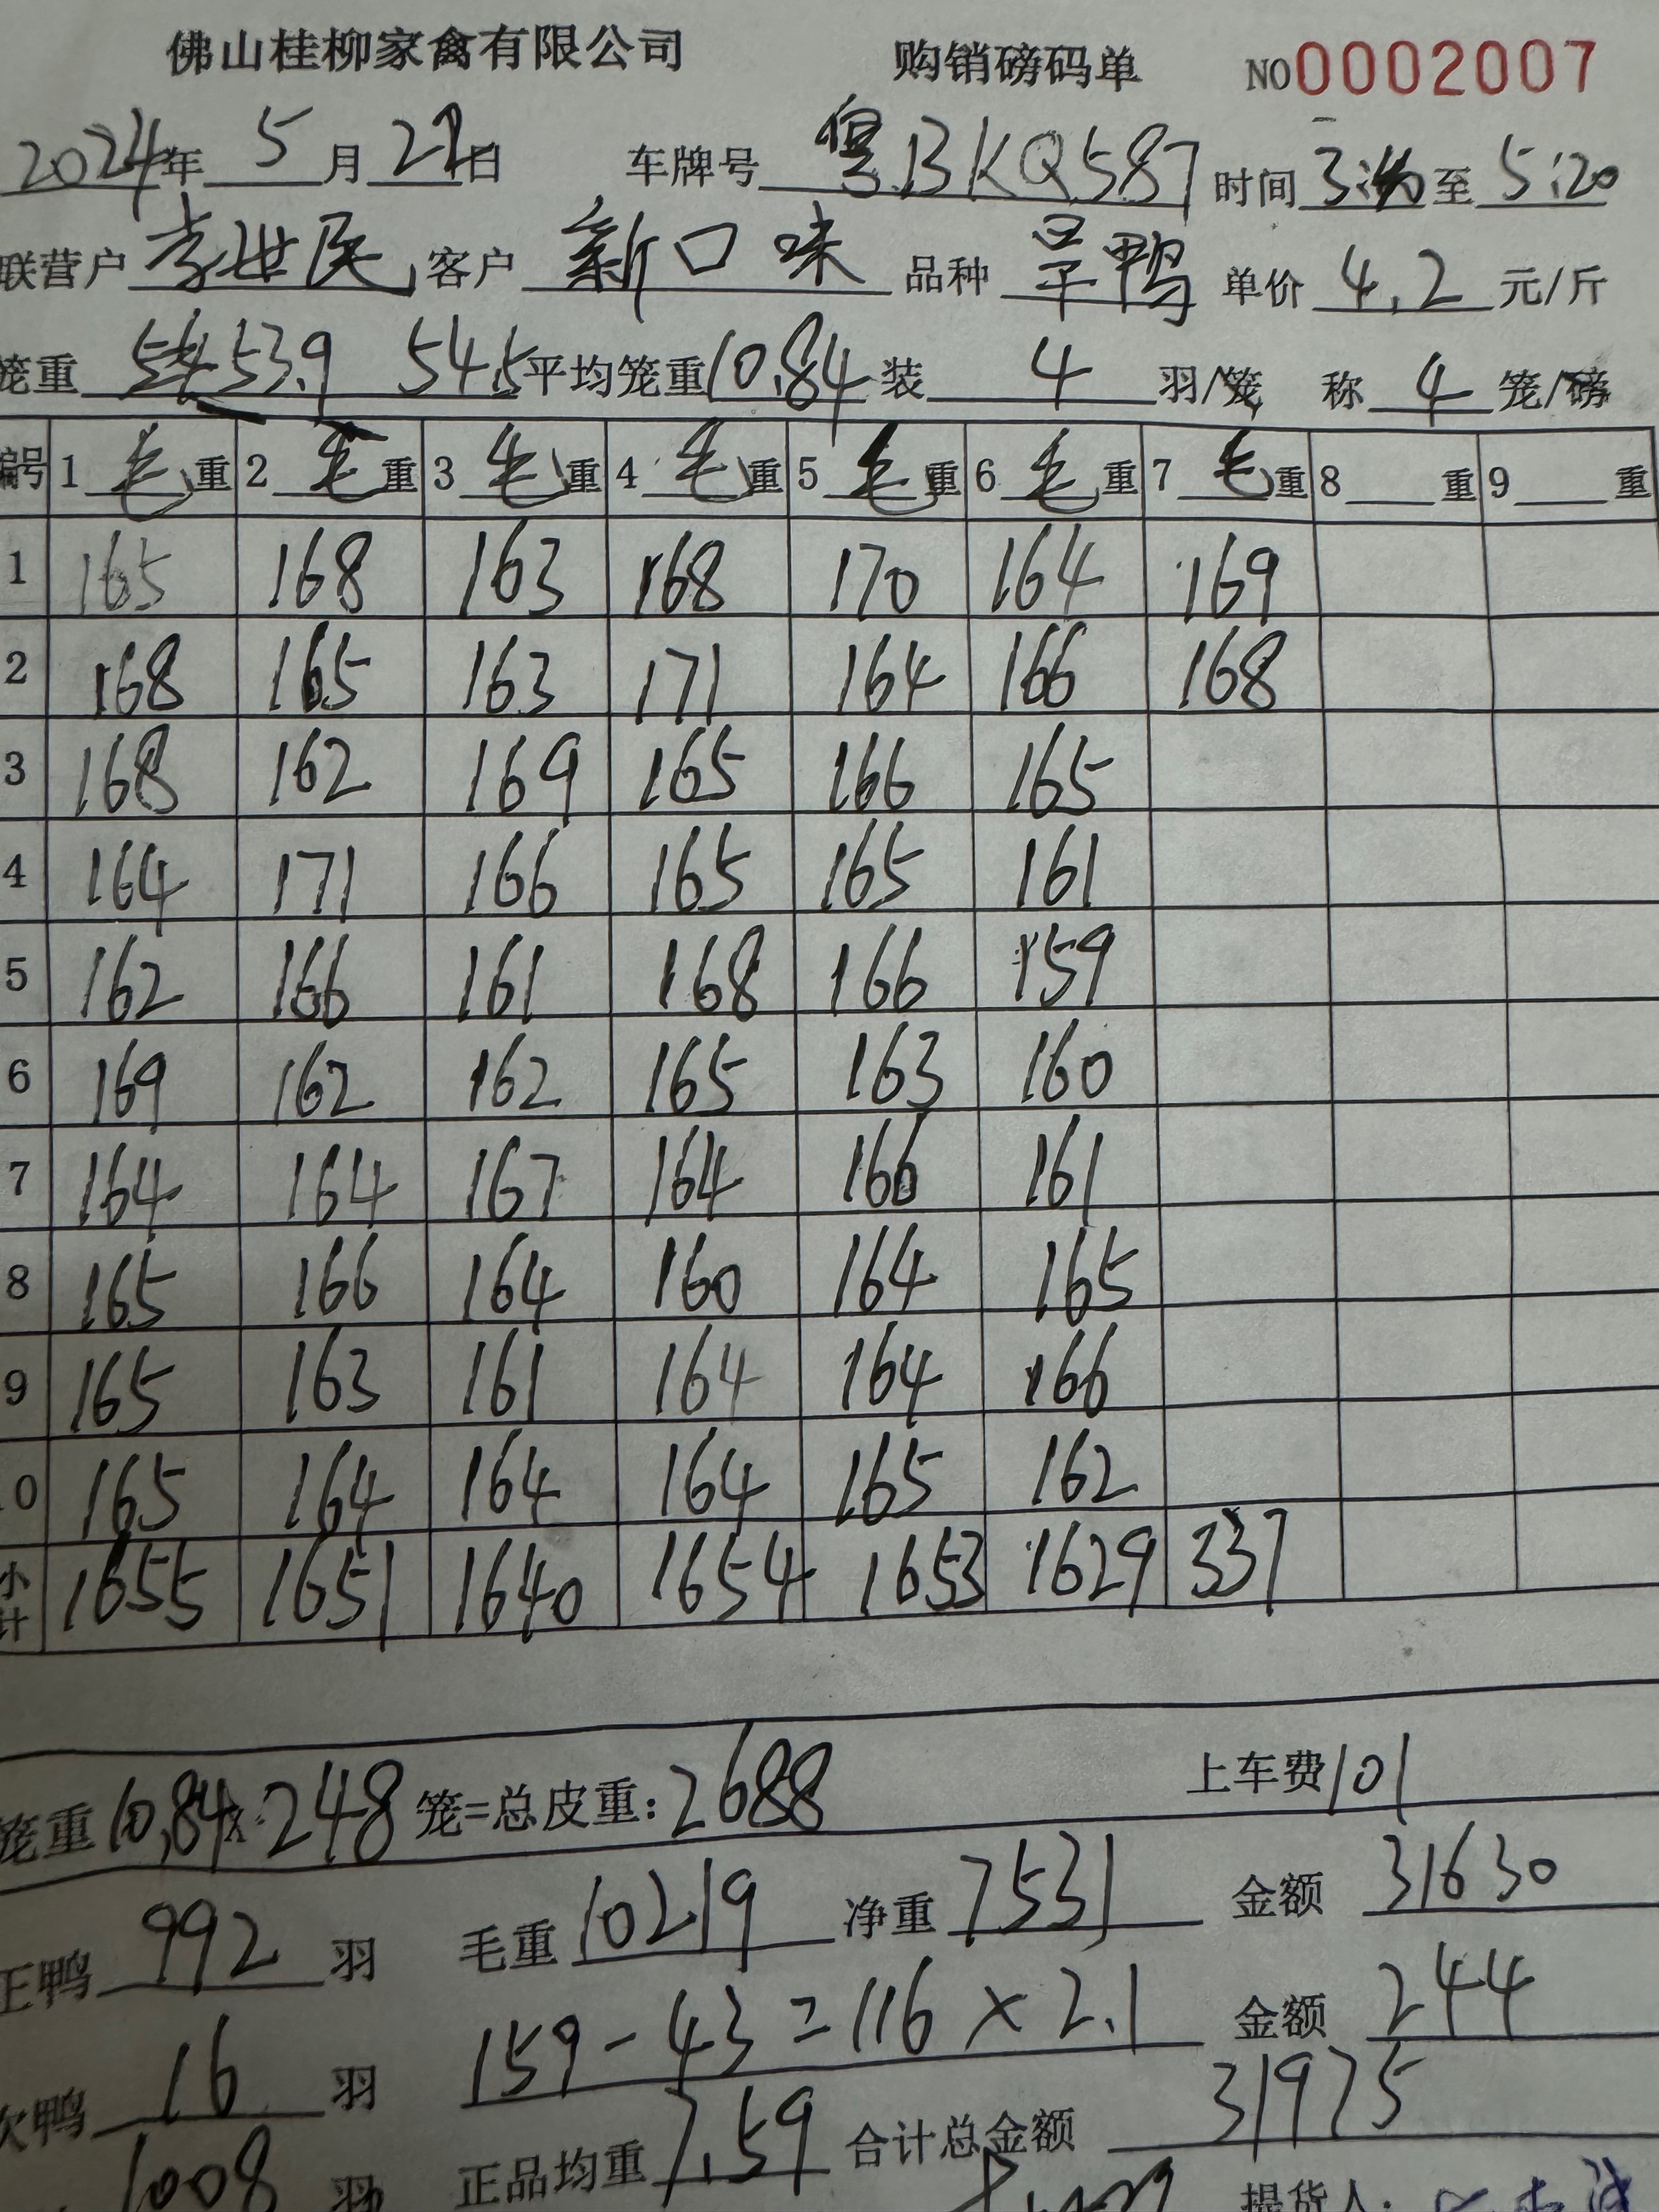 佛山桂柳家禽有限公司 购销磅码单 NO0002007
2024年 5 月 22日 车牌号 粤BKQ587 时间 至 5:20
联营户 李世民 客户 新口味 品种 旱鸭 单价 4.2 元/斤
笼重 53.9 54.5 平均笼重 10.84 装 4 羽/笼 称 4 笼/磅
编号 1 毛 重 2 毛 重 3 毛 重 4 毛 重 5 毛 重 6 毛 重 7 毛 重 8 重 9 重
1 165 168 163 168 170 164 169
2 168 165 163 171 164 166 168
3 168 162 169 165 166 165
4 164 171 166 165 165 161
5 162 166 161 168 166 159
6 169 162 162 165 163 160
7 164 164 167 164 166 161
8 165 166 164 160 164 165
9 165 163 161 164 164 166
10 165 164 164 164 165 162
小计 1655 1651 1640 1654 1653 1629 337
笼重 10.84 x 248 笼=总皮重: 2688 上车费 101
正鸭 992 羽 毛重 10219 净重 7531 金额 31630
次鸭 16 羽 159-43=116×2.1 金额 244
1008 羽 正品均重 7.59 合计总金额 31975
提货人: